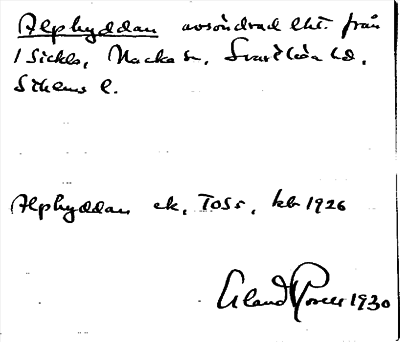 Alphyddan avsöndrad lht. från
1 Sickla, Nacka sn, Svartlösa hd,
Sthlms l.
Alphyddan ek, TOSs, kb 1926
Roser 1930